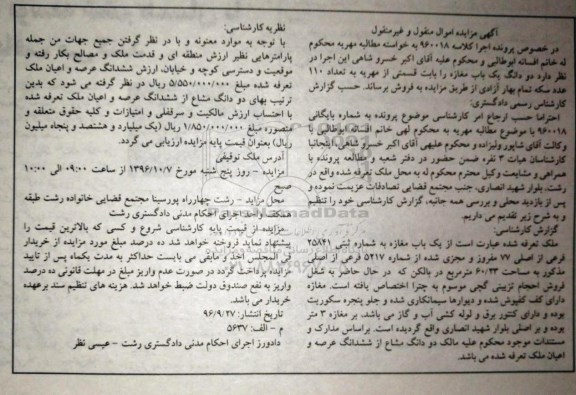 آگهی مزایده اموال منقول و غیرمنقول
در خصوص پرونده اجرا کلاسه ۹۶۰۰۱۸ به خواسته مطالبه مهریه محکوم
له خانم افسانه ابوطالبی و محکوم علیه آقای اکبر خسرو شاهی این اجرا در
نظر دارد دو دانگ یک باب مغازه را بابت قسمتی از مهریه به تعداد ۱۱۰
عدد سکه تمام بهار آزادی از طریق مزایده به فروش برساند. حسب گزارش
کارشناس رسمی دادگستری:
احتراما حسب ارجاع امر کارشناسی موضوع پرونده به شماره بایگانی
۹۶۰۰۱۸ با موضوع مطالبه مهریه به محکوم لهی خانم افسانه ابوطالبی با
وکالت آقای شاپور ولیزاده و محکوم علیهی آقای اکبر خسرو شاهی، اینجانبا
کارشناسان هیات ۳ نفره ضمن حضور در دفتر شعبه و مطالعه پرونده با
همراهی و مشایعت وکیل محترم محکوم له به محل ملک تعرفه شده واقع در
رشت، بلوار شهید انصاری، جنب مجتمع قضایی تصادفات عزیمت نموده و
پس از بازدید محلی و بررسی همه جانبه، گزارش کارشناسی خود را تنظیم
و به شرح زیر تقدیم می داریم.
گزارش کارشناسی:
ملک تعرفه شده عبارت است از یک باب مغازه به شماره ثبتی ۲۵۸۴۱
فرعی از اصلی ۷۷ مفروز و مجزی شده از شماره ۵۲۱۷ فرعی از اصلی
مذکور به مساحت ۶۰/۲۳ مترمربع در بالکن که در حال حاضر به شغل
فروش احجام تزیینی گچی موسوم به چترا اختصاص یافته است. مغازه
دارای کف کفپوش شده و دیوارها سیمانکاری شده و جلو پنجره سکوریت
بوده و دارای کنتور برق و لوله کشی آب و گاز می باشد. بر مغازه ۳ متر
بوده و بر اصلی بلوار شهید انصاری واقع گردیده است. براساس مدارک و
مستندات موجود محکوم علیه مالک دو دانگ مشاع از ششدانگ عرصه و
اعیان ملک تعرفه شده می باشد.
نظریه کارشناسی:
با توجه به موارد معنونه و با در نظر گرفتن جمیع جهات من جمله
پارامترهایی نظیر ارزش منطقه ای و قدمت ملک و مصالح بکار رفته و
موقعیت و دسترسی کوچه و خیابان، ارزش ششدانگ عرصه و اعیان ملک
تعرفه شده مبلغ ۵/۵۵۰/۰۰۰/۰۰۰ ریال در نظر گرفته می شود که بدین
ترتیب بهای دو دانگ مشاع از ششدانگ عرصه و اعیان ملک تعرفه شده
با احتساب ارزش مالکیت و سرقفلی و امتیازات و کلیه حقوق متعلقه و
متصوره مبلغ ۱/۸۵۰/۰۰۰/۰۰۰ ریال (یک میلیارد و هشتصد و پنجاه میلیون
ریال) بعنوان قیمت پایه مزایده ارزیابی می گردد.
آدرس ملک توقیفی
مزایده - روز پنج شنبه مورخ ۱۳۹۶/۱۰/۷ از ساعت ۰۹:۰۰ الی ۱۰:۰۰
صبح
محل مزاید - رشت چهارراه پورسینا مجتمع قضایی خانواده رشت طبقه
همکف واحد اجرای احکام مدنی دادگستری رشت
مزایده از قیمت پایه کارشناسی شروع و کسی که بالاترین قیمت را
پیشنهاد نماید فروخته خواهد شد ده درصد مبلغ مورد مزایده از خریدار
فی المجلس اخذ و مابقی می بایست حداکثر به مدت یکماه پس از تایید
مزایده پرداخت گردد در صورت عدم واریز مبلغ در مهلت قانونی ده درصد
واریز به نفع صندوق دولت ضبط خواهد شد. هزینه های تنظیم سند برعهده
خریدار می باشد.
تاریخ انتشار: ۹۶/۹/۲۷
م - الف: ۵۶۳۷
دادورز اجرای احکام مدنی دادگستری رشت - عیسی نظر